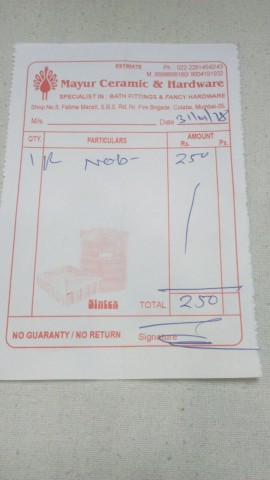 ESTIMATE
Ph.: 022-22814542/43
Mayur Ceramic & Hardware
SPECIALIST IN : BATH FITTINGS & FANCY HARDWARE
Shop No.5, Fatima Manzil, S.B.S. Rd. Nr. Fire Brigade, Colaba, Mumbai-05.
M/s. Date
QTY. PARTICULARS AMOUNT
Rs. Ps.
1 NOB- 250
Sintex
TOTAL 250
NO GUARANTY / NO RETURN Signature